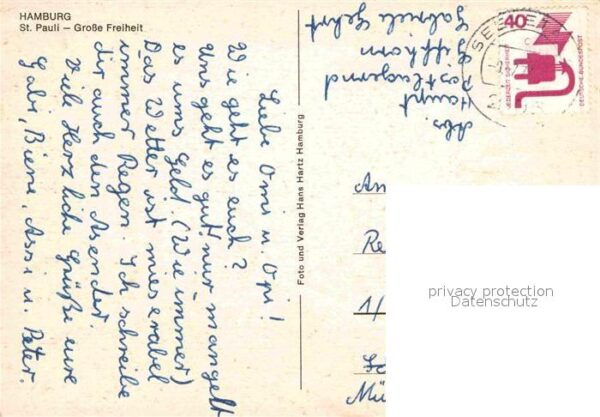 HAMBURG
St. Pauli – Große Freiheit
Liebe Omi u. Opi!
Wie geht es euch?
Uns geht es gut, nur mangelt
es ums Geld. (Wie immer)
Das Wetter ist mieserabel
immer Regen. Ich schreibe
dir auch den Absender.
Viele Herzliche Grüße eure
Gabi, Biene, Assi u. Peter.
Foto und Verlag Hans Hartz Hamburg
Abs.
Haupt
Postlagernd
Gifhorn
Gabriele
40
JEDERZEIT SICHERHEIT
DEUTSCHE BUNDESPOST
SEE
An
Re
1/
Mü
privacy protection
Datenschutz